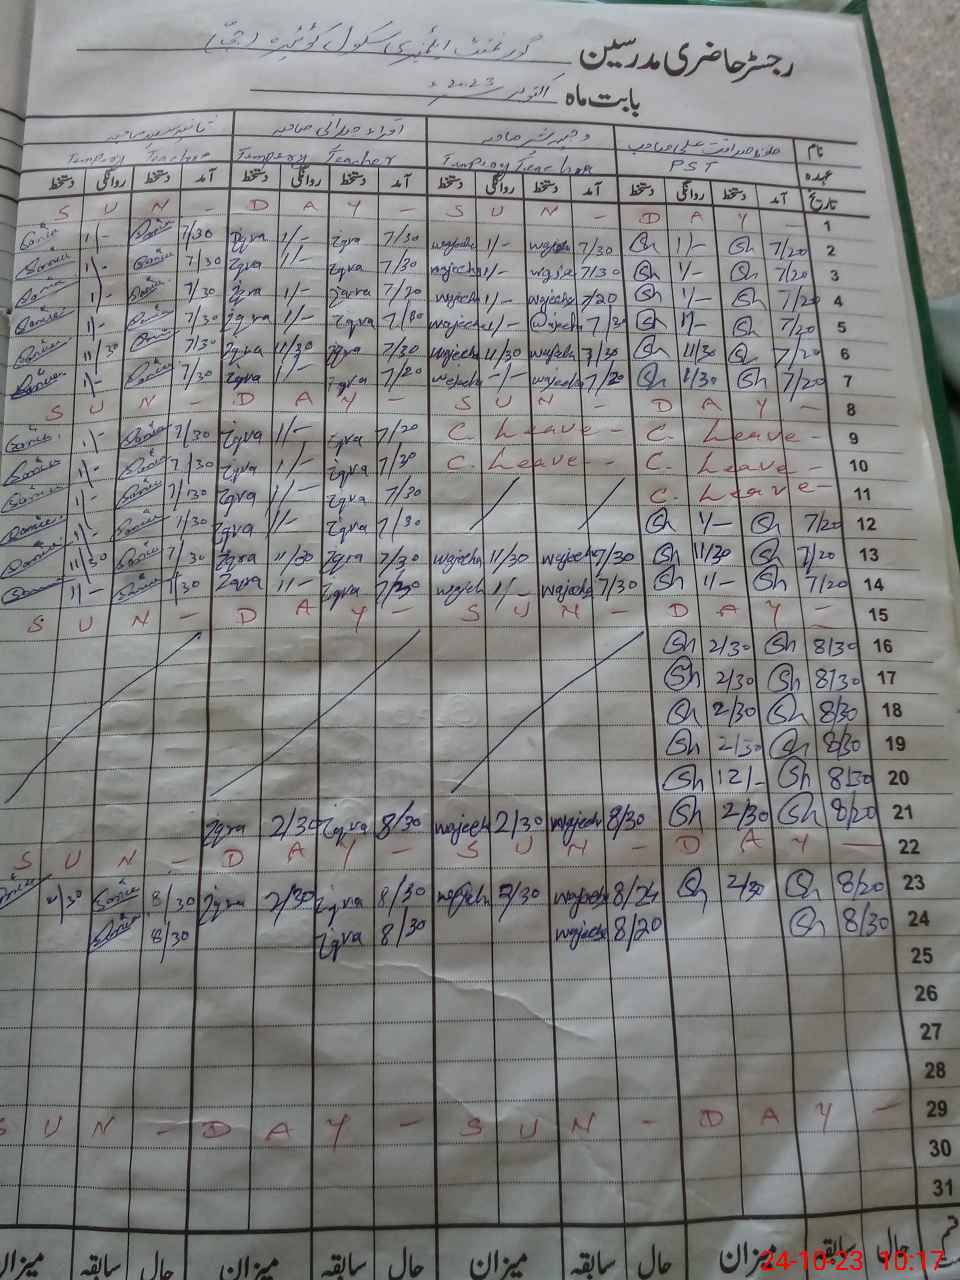 رجسٹر حاضری مدرسین گورنمنٹ پرائمری سکول
بابت ماہ اکتوبر 2023ء
نام
عہدہ PST Tempory Teacher Tempory Teacher Tempory Teacher
تاریخ آمد دستخط روانگی دستخط آمد دستخط روانگی دستخط آمد دستخط روانگی دستخط آمد دستخط روانگی دستخط
S U N - D A Y - S U N - D A Y - 1
Sania 1/- Sania 7/30 Iqra 1/- Iqra 7/30 wajecha 1/- wajecha 7/30 Sh 1/- Sh 7/20 2
Sania 1/- Sania 7/30 Iqra 1/- Iqra 7/30 wajecha 1/- wajecha 7/30 Sh 1/- Sh 7/20 3
Sania 1/- Sania 7/30 Iqra 1/- Iqra 7/20 wajecha 1/- wajecha 7/20 Sh 1/- Sh 7/20 4
Sania 1/- Sania 7/30 Iqra 1/- Iqra wajecha 1/- wajecha Sh 1/- Sh 7/20 5
Sania 11/30 Sania 7/30 Iqra 11/30 Iqra 7/30 wajecha 11/30 wajecha 7/30 Sh 11/30 Sh 7/20 6
Sania 1/- Sania 7/30 Iqra 1/- Iqra 7/20 wajecha -/- wajecha 7/20 Sh 1/30 Sh 7/20 7
S U N - D A Y - S U N - D A Y - 8
Sania 1/- Sania 7/30 Iqra 1/- Iqra 7/20 C. Leave - C. Leave - 9
Sania 1/- Sania 7/30 Iqra 1/- Iqra 7/30 C. Leave - - C. Leave - 10
Sania 1/- Sania 7/30 Iqra 1/- Iqra 7/30 C. Leave - 11
Sania 1/- Sania 7/30 Iqra 1/- Iqra 7/30 Sh 1/- Sh 7/20 12
Sania 11/30 Sania 7/30 Iqra 11/30 Iqra 7/30 wajecha 11/30 wajecha 7/30 Sh 11/30 Sh 7/20 13
Sania 1/- Sania 7/30 Iqra 1/- Iqra wajecha 1/- wajecha 7/30 Sh 1/- Sh 7/20 14
S U N - D A Y - S U N - D A Y - 15
Sh 2/30 Sh 8/30 16
Sh 2/30 Sh 8/30 17
Sh 2/30 Sh 8/30 18
Sh 2/30 Sh 8/30 19
Sh 12/- Sh 8/30 20
Iqra 2/30 Iqra 8/30 wajecha 2/30 wajecha 8/30 Sh 2/30 Sh 8/20 21
S U N - D A Y - S U N - D A Y - 22
Sania 2/30 Sania 8/30 Iqra 2/30 Iqra 8/30 wajecha 2/30 wajecha Sh 2/30 Sh 8/20 23
Sania 8/30 Iqra 8/30 wajecha 8/20 Sh 8/30 24
25
26
27
28
S U N - D A Y - S U N - D A Y - 29
30
31
حال سابقہ میزان حال سابقہ میزان حال سابقہ میزان حال سابقہ میزان
24-10-23 10:17